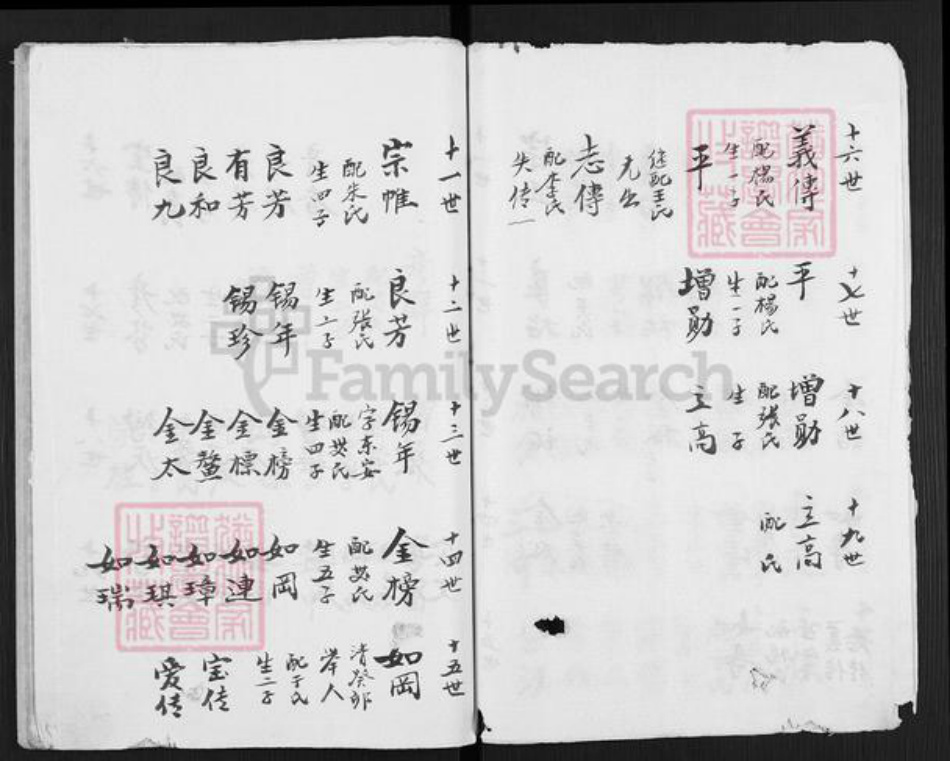 十六世
義傳
配楊氏
生一子
平
继配王氏
无出
志傳
配李氏
失传
十七世
平
配楊氏
生一子
增勛
十八世
增勛
配張氏
生 子
立高
十九世
立高
配 氏
十一世
宗惟
配朱氏
生四子
良芳
有芳
良和
良九
十二世
良芳
配張氏
生二子
錫年
錫珍
十三世
錫年
字东安
生四子
金榜
金標
金鰲
金太
十四世
金榜
生五子
如岡
如連
如璋
如琪
如瑞
十五世
如岡
清癸卯
举人
配于氏
生二子
宝传
爱传
FamilySearch